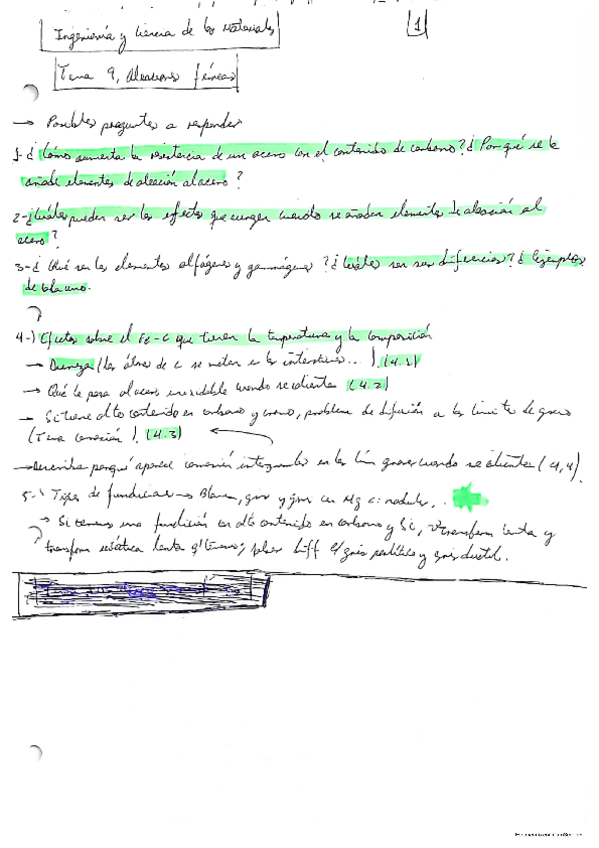 Ingeniería y Ciencia de los Materiales
1
Tema 9, Aleaciones férreas
→ Posibles preguntas a responder
1-¿Cómo aumenta la resistencia de un acero con el contenido de carbono? ¿Por qué se le
añade elementos de aleación al acero?
2-¿Cuáles pueden ser los efectos que surgen cuando se añaden elementos de aleación al
acero?
3-¿Qué son los elementos alfágenos y gammágenos? ¿Cuáles son sus diferencias? ¿Ejemplos
de cada uno.
4-) Efectos sobre el Fe-C que tienen la temperatura y la composición
→ Dureza (los átomos de C se meten en los intersticios...) (4.1)
→ Qué le pasa al acero inoxidable cuando se calienta (4.2)
→ Si tiene alto contenido en carbono y cromo, problema de difusión a los límites de grano
(Tema corrosión). (4.3)
→ describa porqué aparece corrosión intergranular en los lím grano cuando se calienta (4.4).
5-) Tipos de fundiciones → Blanca, gris y gris con Mg o nodular..
→ Si tenemos una fundición con alto contenido en carbono y Si, transform lenta y
transform lenta y diff gris perlítica y gris dúctil.